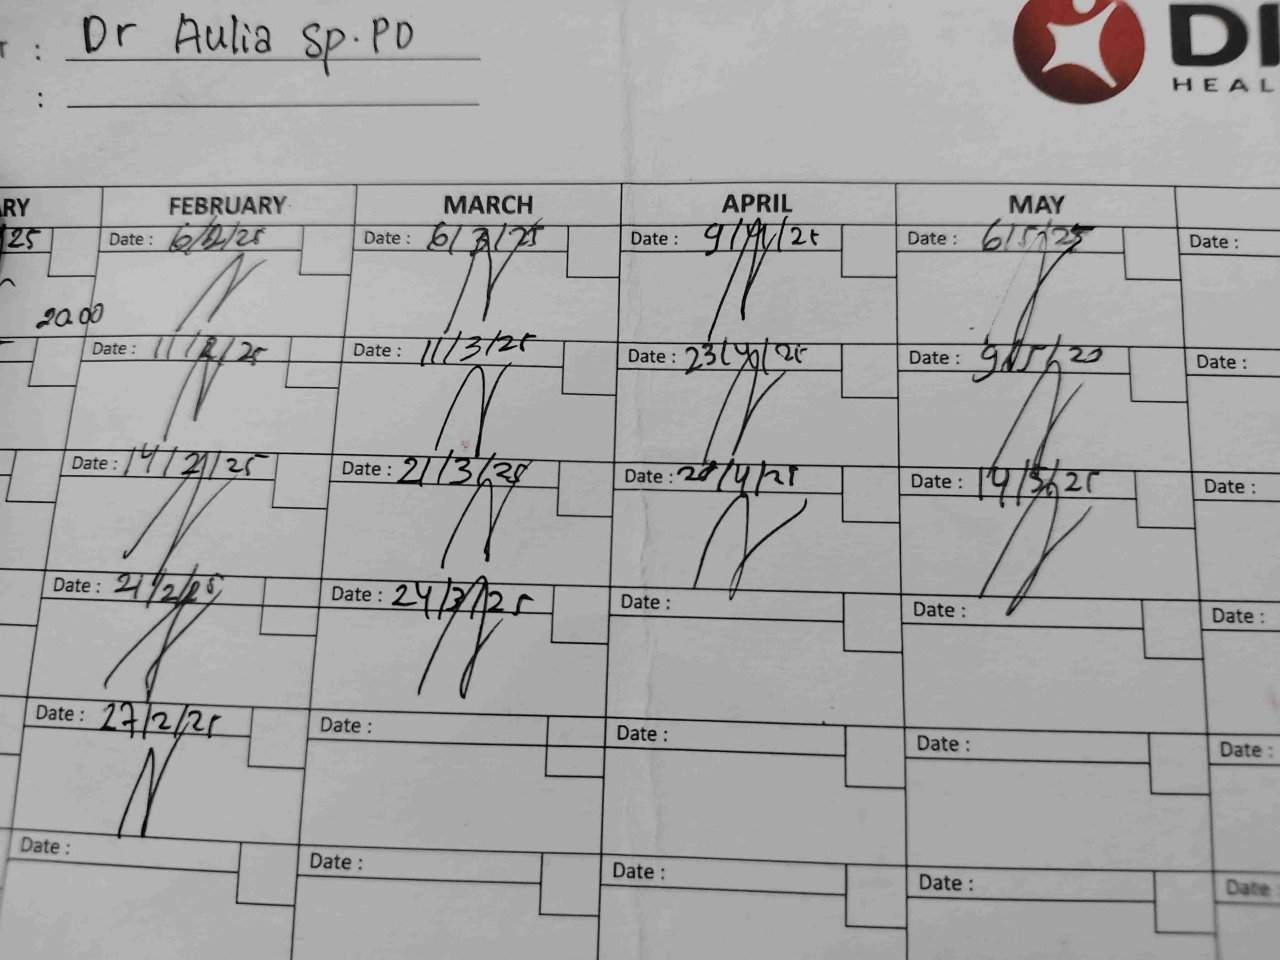 : Dr Aulia Sp.PD
:
HEAL
FEBRUARY MARCH APRIL MAY
25 Date : 6/2/25 Date : 6/3/25 Date : 9/4/25 Date : 6/5/25 Date :
20.00
Date : 11/2/25 Date : 11/3/25 Date : 23/4/25 Date : 9/5/25 Date :
Date : 14/2/25 Date : 21/3/25 Date : /4/25 Date : 14/5/25 Date :
Date : 21/2/25 Date : 24/3/25 Date : Date : Date :
Date : 27/2/25 Date : Date : Date : Date :
Date : Date : Date : Date : Date :